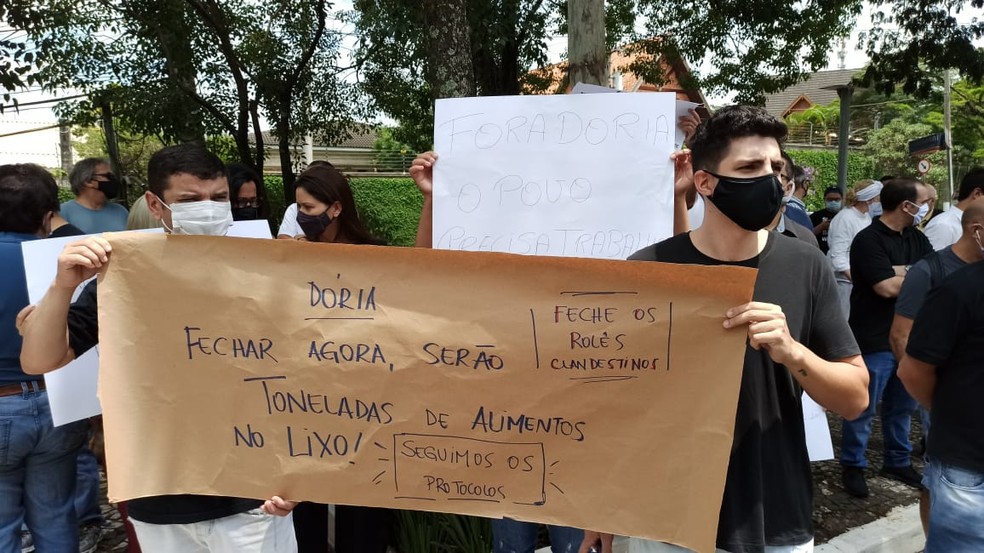 FORA DORIA
O POVO
PRECISA TRABAL
DÓRIA
FECHAR AGORA, SERÃO
TONELADAS DE ALIMENTOS
NO LIXO!
FECHE OS
ROLÊS
CLANDESTINOS
SEGUIMOS OS
PROTOCOLOS